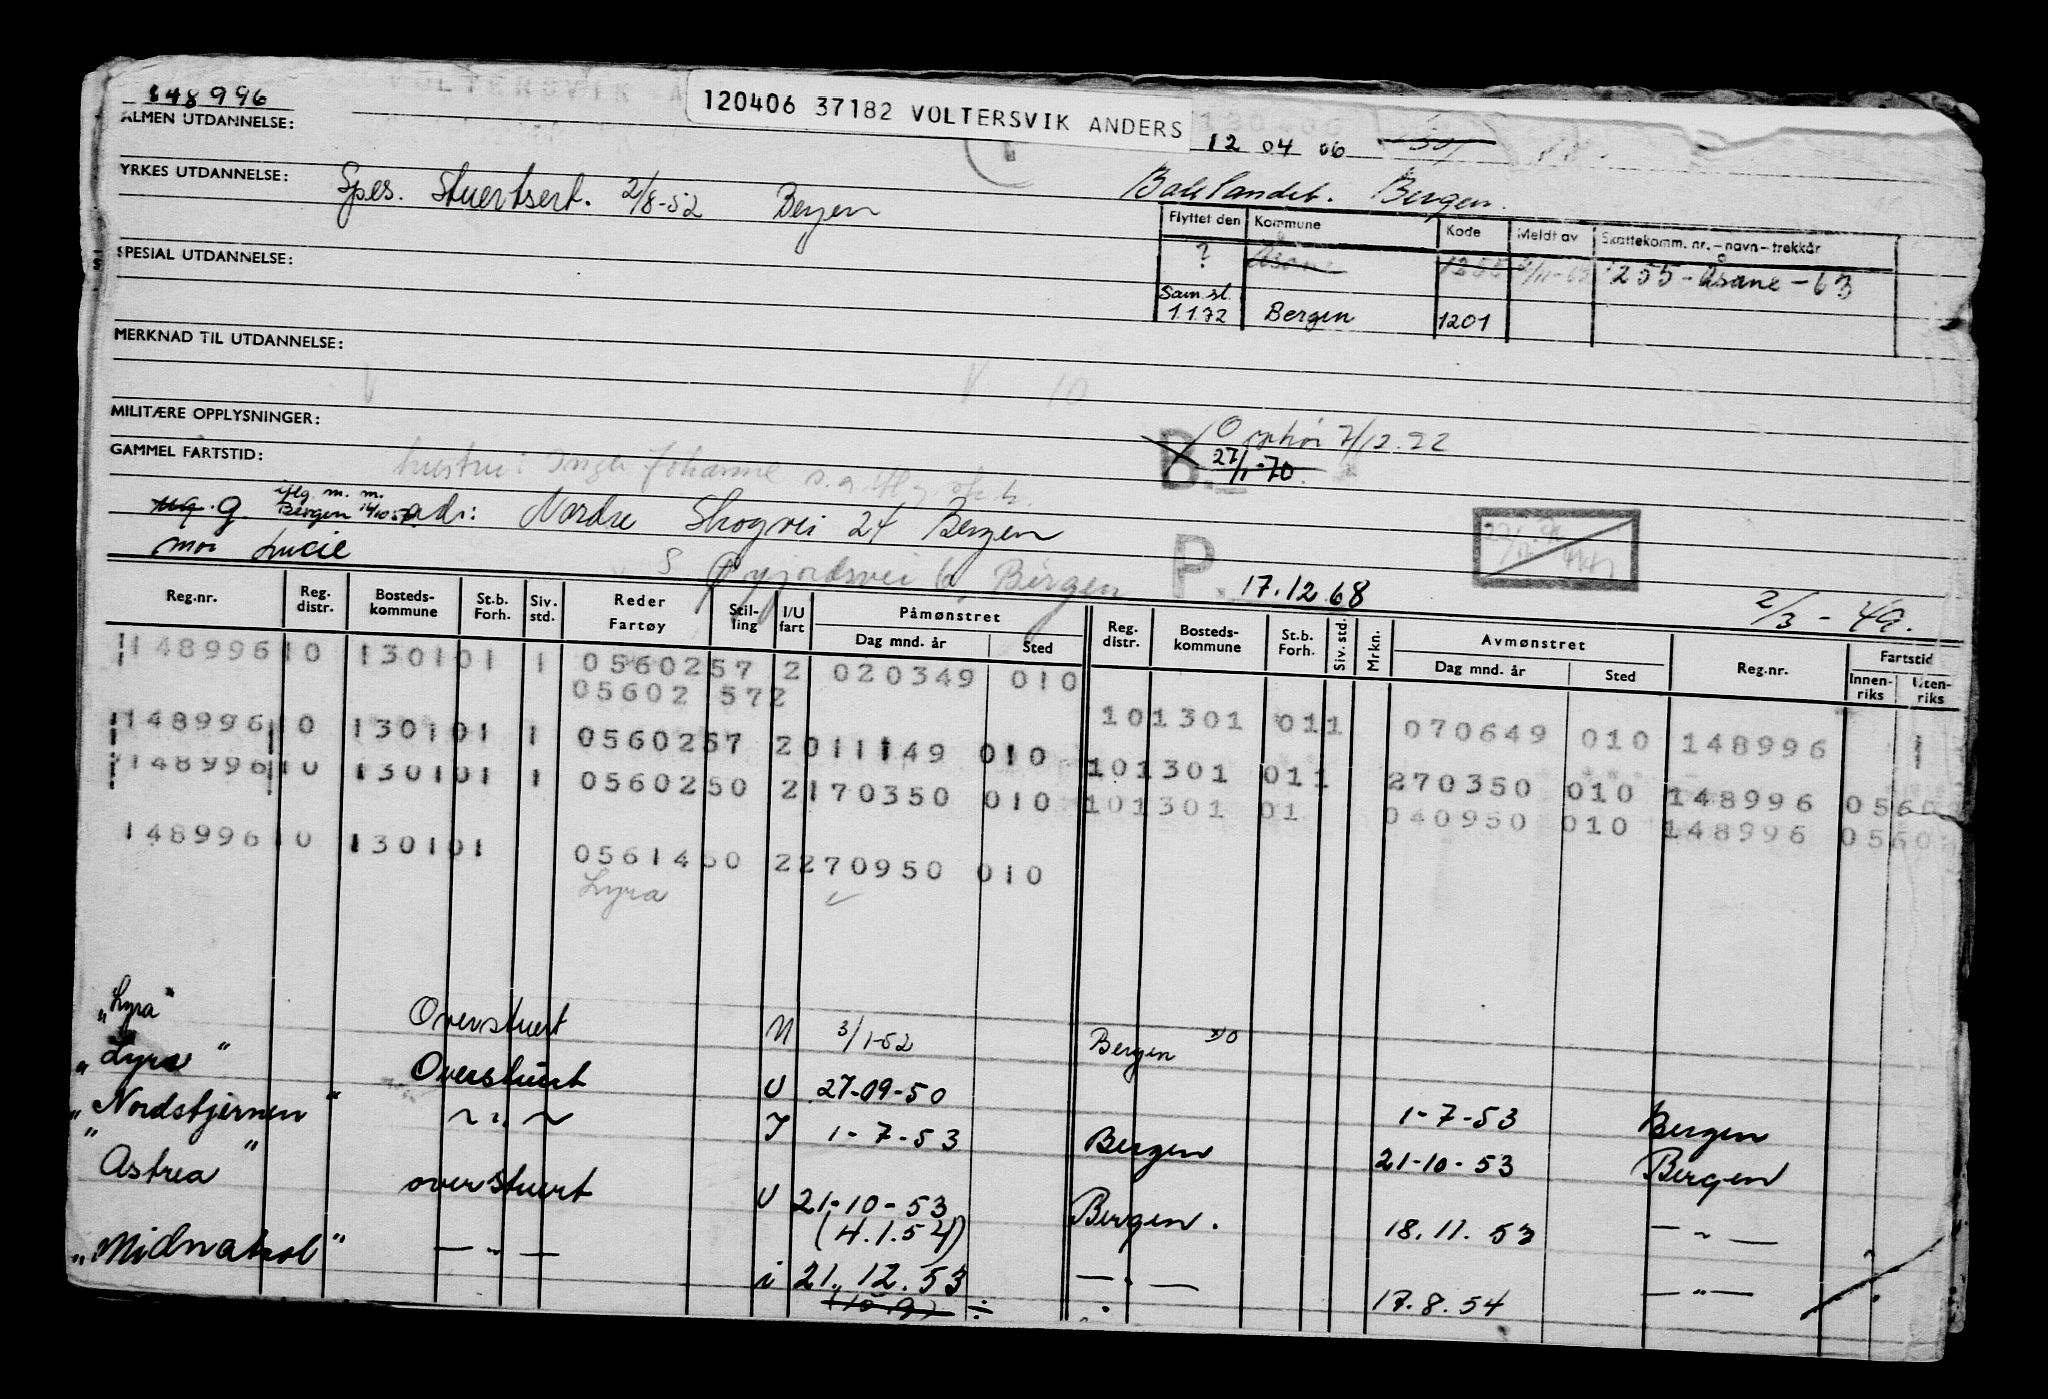 148996
120406 37182 VOLTERSVIK ANDERS
12 04 06
ALMEN UTDANNELSE:
YRKES UTDANNELSE: Spes. Stuertsert. 2/8-52 Bergen
Bergen.
Flyttet den Kommune Kode Meldt av Skattekomm. nr. – navn – trekkår
? Åsane 1255 1255 - Åsane - 63
Sam.sl. 1.1.72 Bergen 1201
SPESIAL UTDANNELSE:
MERKNAD TIL UTDANNELSE:
MILITÆRE OPPLYSNINGER:
GAMMEL FARTSTID:
B. Opphør 7/12.22
27/1-70.
hustru: Inger Johanne s.a.
ug. g. iflg. m. m. Bergen adr: Nordre Skogvei 24 Bergen
mor Lucie
Bergen
P. 17.12.68
2/3 - 49.
Reg.nr. Reg. distr. Bosteds- kommune St.b. Forh. Siv. std. Reder Fartøy Stil- ling I/U fart Påmønstret Dag mnd. år Sted Reg. distr. Bosteds- kommune St.b. Forh. Siv. std. Mrkn. Avmønstret Dag mnd. år Sted Reg.nr. Fartstid Innen- riks Uten- riks
148996 10 130101 1 0560257 2 020349 010
05602 572
101301 011 070649 010 148996
148996 10 130101 1 0560257 2 011149 010
101301 011 270350 010 148996 0560
148996 10 130101 1 0560250 2 170350 010
101301 01 040950 010 148996 0560
148996 10 130101 0561450 2 270950 010
Lyra
"Lyra" Overstuert U 3/1-52 Bergen
"Lyra" Overstuert U 27-09-50 1-7-53 Bergen
"Nordstjernen" ~ " ~ I 1-7-53 Bergen 21-10-53 Bergen
"Astrea" overstuert U 21-10-53 Bergen. 18.11.53 — " —
(4.1.54)
"Midnatsol" — " — i 21.12.53 — " — 17.8.54 — " —